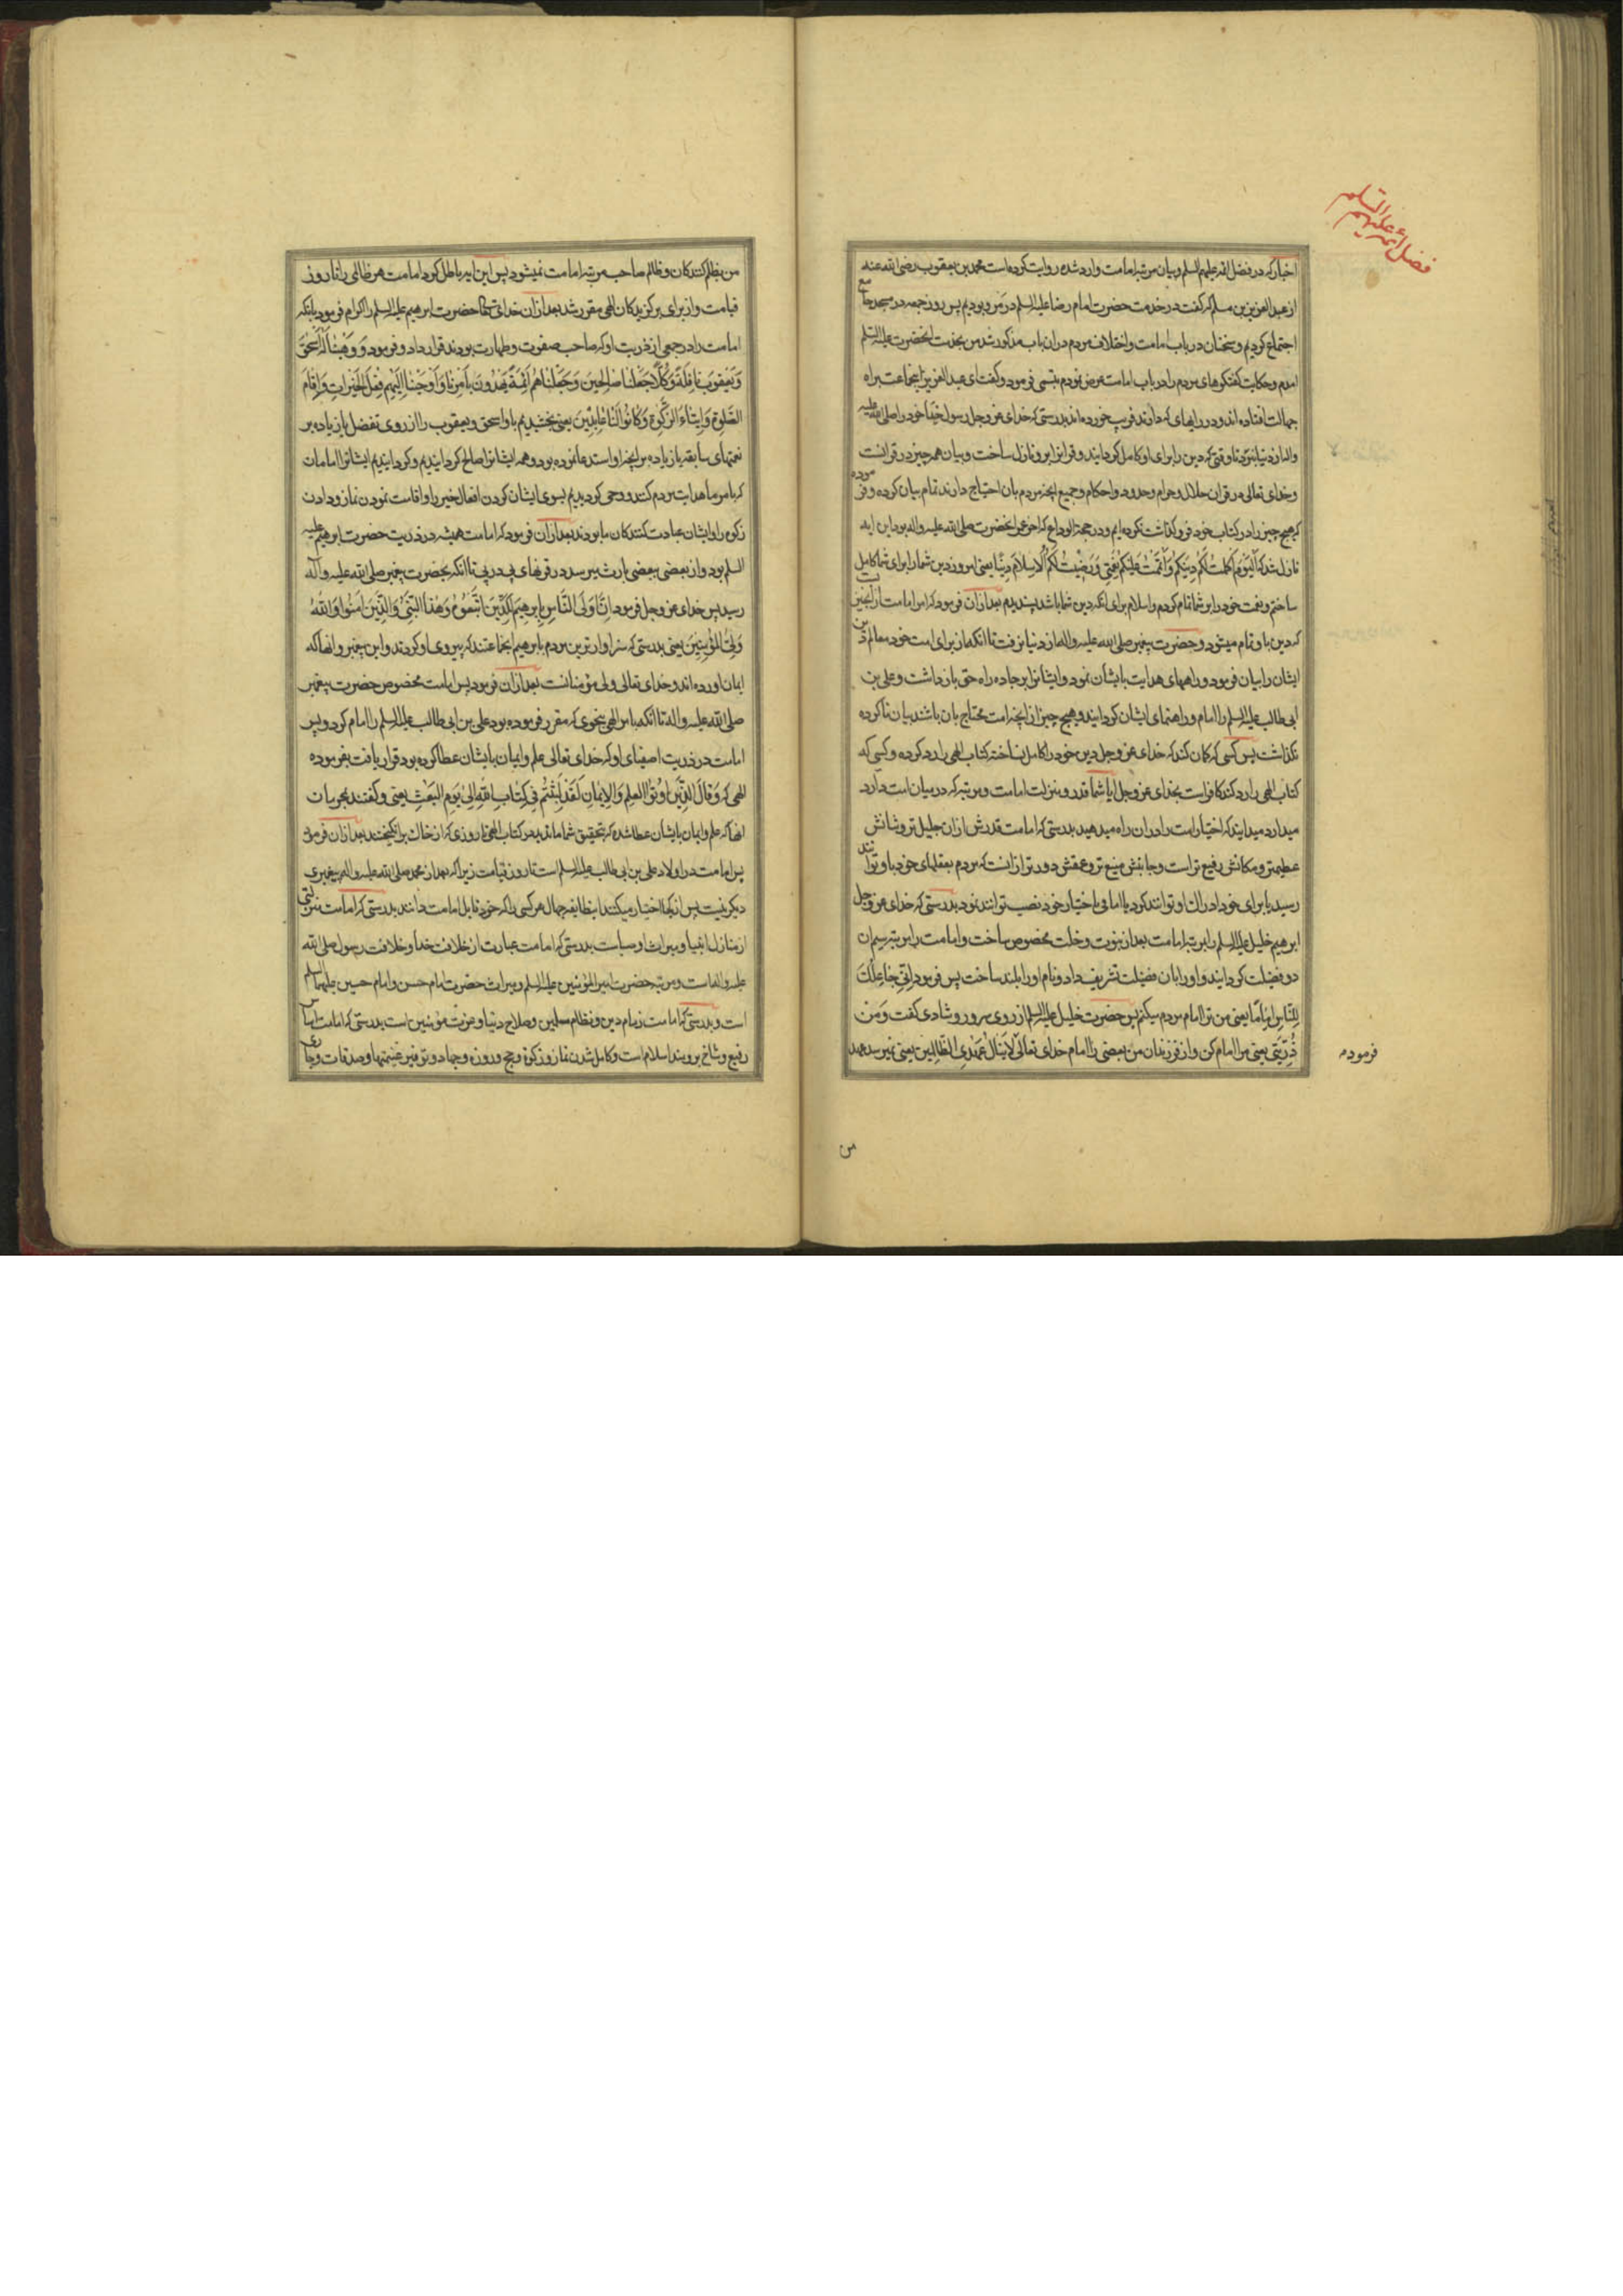 فضل ائمه علیهم السلام
اخبار که در فضل ائمه علیهم السلم و بیان مرتبه امامت وارد شده روایت کرده است محمد بن یعقوب رضی الله عنه
از عبد العزیز بن مسلم که گفت در خدمت حضرت امام رضا علیه السلم در مرو بودیم پس روز جمعه در مسجد جامع
اجتماع کردیم و سخنان در باب امامت و اختلاف مردم دران باب مذکور شد من بخدمت انحضرت علیه السلم
امدم و حکایت کفتکوهای مردم را در باب امامت عرض نمودم تبسمی فرمود و کفت ای عبد العزیز اینجماعت براه
جهالت افتاده اند و در رایهای که دارند فریب خورده اند بدرستی که خدای عز و جل رسول خود را صلی الله علیه
واله از دنیا نبرد تا وقتی که دین را برای او کامل کردانید و قران برو نازل ساخت و بیان همه چیز در قرانست
و خدای تعالی در قران حلال و حرام و حدود و احکام و جمیع انچه مردم بان احتیاج دارند تمام بیان کرده و فرموده
که هیچ چیز را در کتاب خود فروکذاشت نکرده ایم و در حجة الوداع که اخر عمر انحضرت صلی الله علیه واله بود این ایه
نازل شد که اَلْیَوْمَ اَکْمَلْتُ لَکُمْ دینَکُمْ وَاَتْمَمْتُ عَلَیْکُمْ نِعْمَتی وَرَضیتُ لَکُمُ الْاِسْلامَ دینًا یعنی امروز دین شما را برای شما کامل
ساختم و نعمت خود را بر شما تمام کردم و اسلام برای انکه دین شما باشد پسندیدم بعد ازان فرمود که امر امامت از انچیزیست
که دین با و تمام میشود و حضرت پیغمبر صلی الله علیه واله از دنیا نرفت تا انکه از برای امت خود معالم دین
ایشان را بیان فرمود و راههای هدایت بایشان نمود و ایشانرا بر جاده راه حق بازداشت و علی بن
ابی طالب علیه السلم را امام و راهنمای ایشان کردانید و هیچ چیز از انچه امت محتاج بان باشند بیان ناکرده
نکذاشت پس کسی که کمان کند که خدای عز و جل دین خود را کامل نساخته کتاب الهی را رد کرده و کسی که
کتاب الهی را رد کند کافر است بخدای عز و جل ایا شما قدر و منزلت امامت و مرتبه که در میان امت دارد
میدارد میدانید که اختیار امت را دران راه میدهید بدرستی که امامت قدرش ازان جلیل تر و شانش
عظیمتر و مکانش رفیع تر است و جانبش منیع تر و عمقش دورتر ازانست که مردم بعقلهای خود باو توانند
رسید یا برای خود ادراک او توانند کرد یا امامی باختیار خود نصب توانند نمود بدرستی که خدای عز و جل
ابرهیم خلیل علیه السلم را بمرتبه امامت بعد از نبوت و خلت مخصوص ساخت و امامت را مرتبه سیم ان
دو فضیلت کردانید و او را بان فضیلت تشریف داد و نام او را بلند ساخت پس فرمود اِنّی جاعِلُکَ
لِلنّاسِ اِمامًا یعنی من ترا امام مردم میکنم پس حضرت خلیل علیه السلم از روی سرور و شادی کفت وَمِنْ
ذُرِّیَّتی یعنی مرا امام کن و از فرزندان من بعضی را امام خدای تعالی لایَنالُ عَهْدِی الظّالِمینَ یعنی نمیرسد عهد
فرموده
من
من بظلم کنندکان و ظالم صاحب مرتبه امامت نمیشود پس این ایه باطل کرد امامت هر ظالمی را تا روز
قیامت و از برای برکزیدکان الهی مقرر شد بعد ازان خدای تعالی حضرت ابرهیم علیه السلم را اکرام فرمود بانکه
امامت را در جمعی از ذریت او که صاحب صفوت و طهارت بودند قرار داد و فرمود وَوَهَبْنا لَهُ اِسْحٰقَ
وَیَعْقُوبَ نافِلَةً وَکُلًّا جَعَلْنا صالِحینَ وَجَعَلْناهُمْ اَئِمَّةً یَهْدُونَ بِاَمْرِنا وَاَوْحَیْنا اِلَیْهِمْ فِعْلَ الْخَیْراتِ وَاِقامَ
الصَّلٰوةِ وَایتاءَ الزَّکٰوةِ وَکانُوا لَنا عابِدینَ یعنی بخشیدیم باو اسحق و یعقوب را از روی تفضل یا زیاده بر
نعمتهای سابقه یا زیاده بر انچه او استدعا نموده بود و همه ایشانرا صالح کردانیدیم و کردانیدیم ایشانرا امامان
که بامر ما هدایت مردم کنند و وحی کردیم بسوی ایشان کردن افعال خیر را و اقامت نمودن نماز و دادن
زکوة را و ایشان عبادت کنندکان ما بودند بعد ازان فرمود که امامت همیشه در ذریت حضرت ابرهیم علیه
السلم بود و از بعضی ببعضی بارث میرسد در قرنهای پی در پی تا انکه بحضرت پیغمبر صلی الله علیه وآله
رسید پس خدای عز و جل فرمود اِنَّ اَوْلَی النّاسِ بِاِبْرهیمَ لَلَّذینَ اتَّبَعُوهُ وَهٰذَا النَّبِیُّ وَالَّذینَ اٰمَنُوا وَاللّٰهُ
وَلِیُّ الْمُؤْمِنینَ یعنی بدرستی که سزاوارترین مردم بابرهیم انجماعتند که پیروی او کردند و این پیغمبر و انها که
ایمان اورده اند و خدای تعالی ولی مؤمنانست بعد ازان فرمود پس امامت مخصوص حضرت پیغمبر
صلی الله علیه واله تا انکه بامر الهی بنحوی که مقرر فرموده بود علی بن ابی طالب علیه السلم را امام کرد و پس
امامت در ذریت اصفیای او که خدای تعالی علم و ایمان بایشان عطا کرده بود قرار یافت بفرموده
الهی که وَقالَ الَّذینَ اُوتُوا الْعِلْمَ وَالْایمانَ لَقَدْ لَبِثْتُمْ فی کِتابِ اللّٰهِ اِلٰی یَوْمِ الْبَعْثِ یعنی و کفتند
انها که علم و ایمان بایشان عطا شده که بتحقیق شما ماندید در کتاب الهی تا روزی که از خاک برانکیختند بعد ازان فرمود
پس امامت در اولاد علی بن ابی طالب علیه السلم است تا روز قیامت زیرا که بعد از محمد صلی الله علیه واله پیغمبری
دیکر نیست پس از کجا اختیار میکنند این طایفه جهال هر کسی را که خود قابل امامت دانند بدرستی که امامت منزلتی
از منازل انبیا و میراث اوصیاست بدرستی که امامت عبارت از خلافت خدا و خلافت رسول صلی الله
علیه واله است و مرتبه حضرت امیر المؤمنین علیه السلم و میراث حضرت امام حسن و امام حسین علیهما السلم
است و بدرستی که امامت زمام دین و نظام مسلمین و صلاح دنیا و عزت مؤمنین است بدرستی که امامت اساس
رفیع و شاخ برومند اسلام است و کامل شدن نماز و زکوة و حج و روزه و جهاد و توفیر غنیمتها و صدقات و